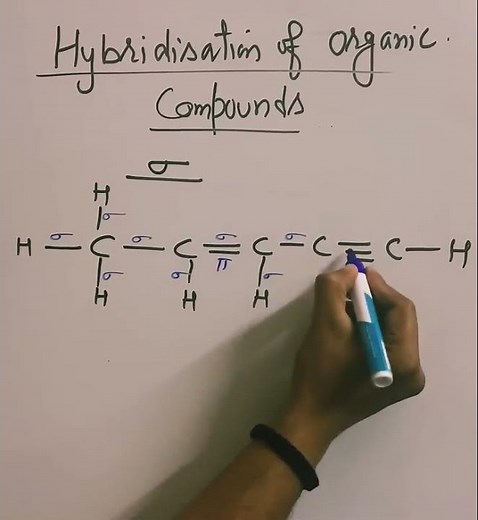 Hybridisation of organic.
Compounds
σ
H
σ
H — C — C = C — C ≡ C — H
σ σ σ σ
π
σ σ σ
H H H